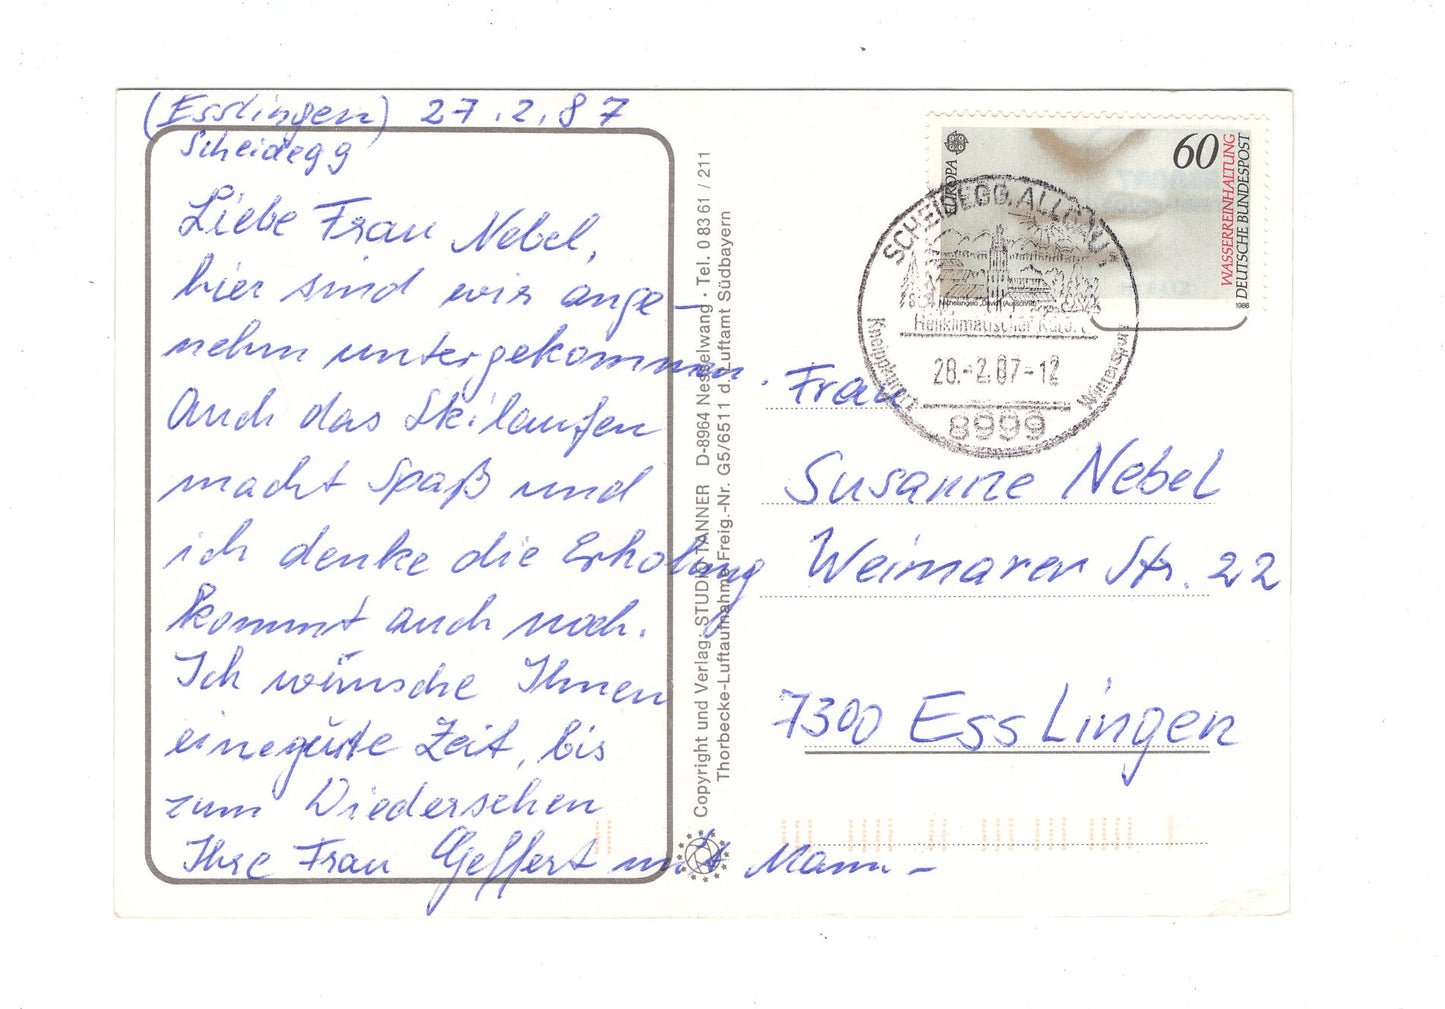 (Esslingen) 27.2.87
Scheidegg
Liebe Frau Nebel,
hier sind wir ange-
nehm untergekommen.
Auch das Skilaufen
macht Spaß und
ich denke die Erholung
kommt auch noch.
Ich wünsche Ihnen
eine gute Zeit, bis
zum Wiedersehen
Ihre Frau Geffert mit Mann -
Copyright und Verlag: STUDIO TANNER D-8964 Nesselwang · Tel. 0 83 61 / 211
Thorbecke-Luftaufnahme Freig.-Nr. G5/6511 d. Luftamt Südbayern
EUROPA
60
WASSERREINHALTUNG
DEUTSCHE BUNDESPOST
Michelangelo „David“ (Ausschnitt)
1986
SCHEIDEGG, ALLGÄU
Heilklimatischer Kurort
Kneippkurort
Wintersport
28.-2.87-12
8999
Frau
Susanne Nebel
Weimarer Str. 22
7300 Esslingen